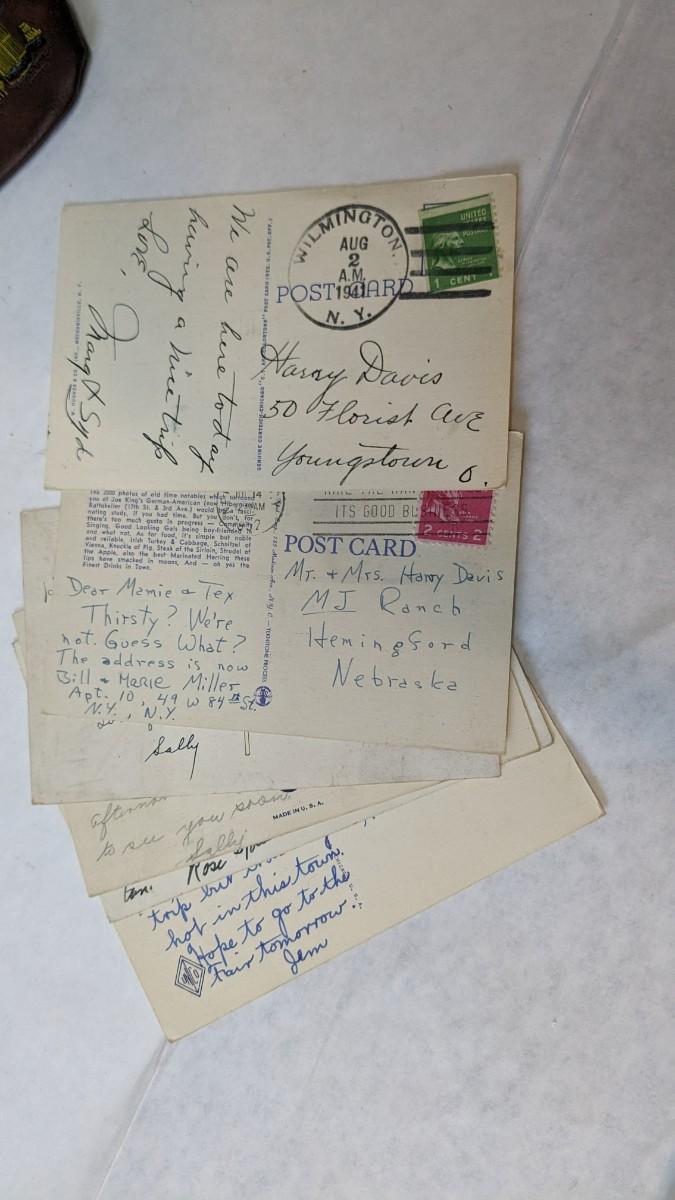 We are here today
having a nice trip
Love,
Marg & Syd
WILMINGTON.
AUG
2
A.M.
1941
N. Y.
UNITED
STATES
POSTAGE
1 CENT
POST CARD
Harry Davis
50 Florist Ave
Youngstown O.
The 2000 photos of old time notables which surround
you at Joe King's German-American (now Hibernian)
Rathskeller (17th St. & 3rd Ave.) would be a fasci-
nating study, if you had time. But you don't, for
there's too much gusto in progress — Community
Singing, Good Looking Gals being boy-friended in
and what not. As for food, it's simple but noble
and reliable, Irish Turkey & Cabbage, Schnitzel of
Vienna, Knuckle of Pig, Steak of the Sirloin, Strudel of
the Apple, also the best Marinated Herring these
lips have smacked in moons, And — oh yes the
Finest Drinks in Town.
14
AM
ITS GOOD
2 CENTS 2
POST CARD
Dear Mamie & Tex
Thirsty? We're
not. Guess What?
The address is now
Bill & Marie Miller
Apt. 10, 49 W 84th St.
N.Y., N.Y.
Mr. & Mrs. Harry Davis
MJ Ranch
Hemingford
Nebraska
Sally
afternoon
to see you soon.
Sally
MADE IN U. S. A.
Rose
trip but
hot in this town.
Hope to go to the
Fair tomorrow.
Jem